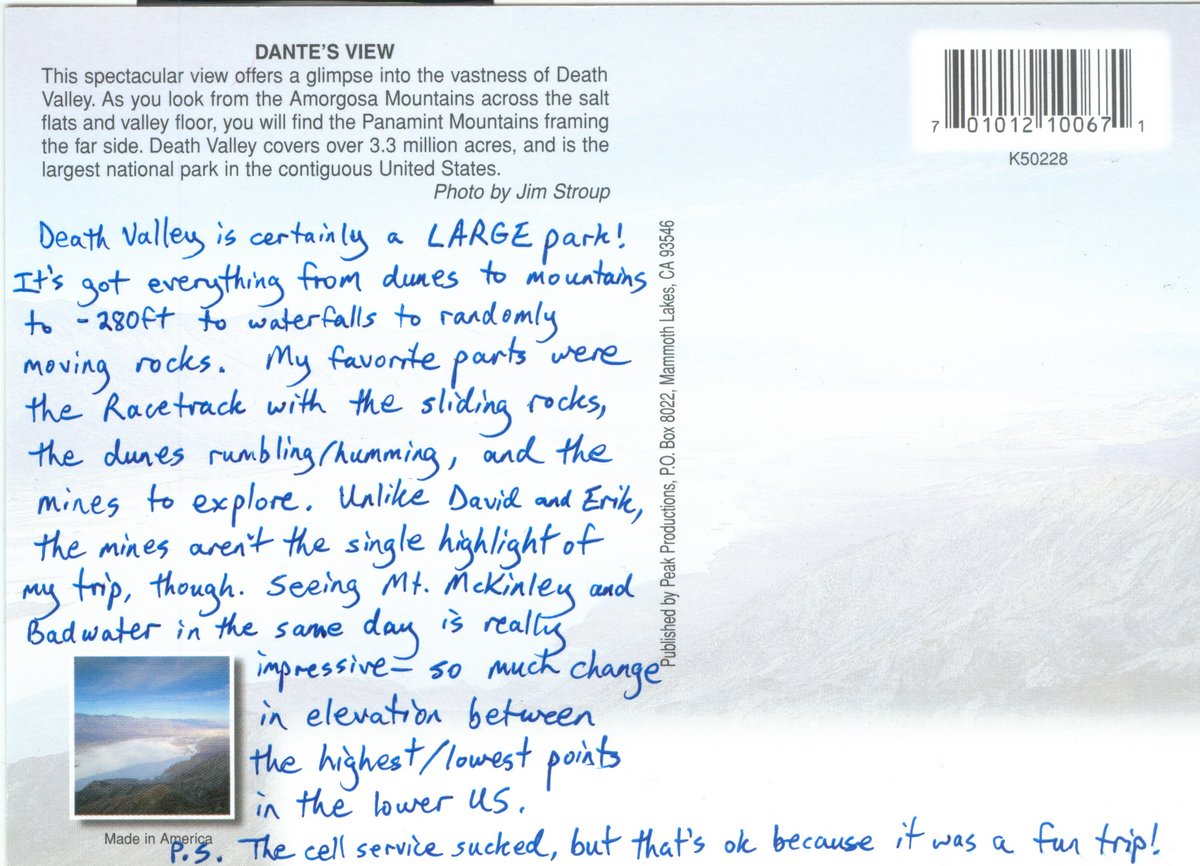 DANTE'S VIEW
This spectacular view offers a glimpse into the vastness of Death
Valley. As you look from the Amorgosa Mountains across the salt
flats and valley floor, you will find the Panamint Mountains framing
the far side. Death Valley covers over 3.3 million acres, and is the
largest national park in the contiguous United States.
Photo by Jim Stroup
7 01012 10067 1
K50228
Death Valley is certainly a LARGE park!
It's got everything from dunes to mountains
to -280ft to waterfalls to randomly
moving rocks. My favorite parts were
the Racetrack with the sliding rocks,
the dunes rumbling/humming, and the
mines to explore. Unlike David and Erik,
the mines aren't the single highlight of
my trip, though. Seeing Mt. McKinley and
Badwater in the same day is really
impressive— so much change
in elevation between
the highest/lowest points
in the lower US.
Made in America
P.S. The cell service sucked, but that's ok because it was a fun trip!
Published by Peak Productions, P.O. Box 8022, Mammoth Lakes, CA 93546